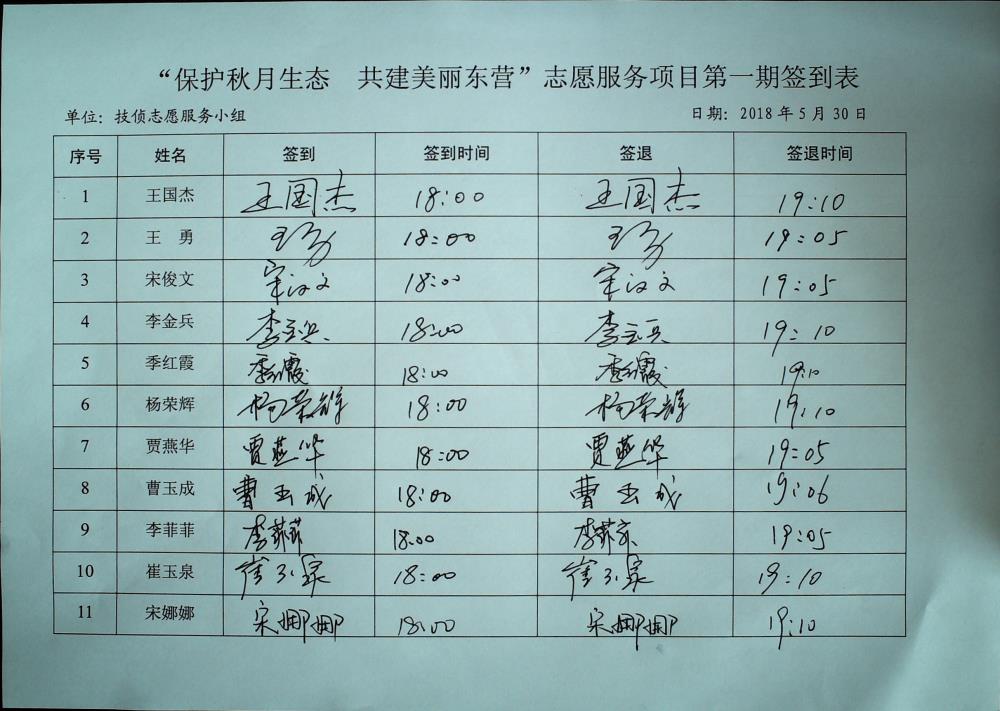 “保护秋月生态　共建美丽东营”志愿服务项目第一期签到表
单位：技侦志愿服务小组 日期：2018年5月30日
序号 姓名 签到 签到时间 签退 签退时间
1 王国杰 王国杰 18:00 王国杰 19:10
2 王　勇 王勇 18:00 王勇 19:05
3 宋俊文 宋俊文 18:00 宋俊文 19:05
4 李金兵 李金兵 18:00 李金兵 19:10
5 季红霞 季红霞 18:00 季红霞 19:10
6 杨荣辉 杨荣辉 18:00 杨荣辉 19:10
7 贾燕华 贾燕华 18:00 贾燕华 19:05
8 曹玉成 曹玉成 18:00 曹玉成 19:06
9 李菲菲 李菲菲 18:00 李菲菲 19:05
10 崔玉泉 崔玉泉 18:00 崔玉泉 19:10
11 宋娜娜 宋娜娜 18:00 宋娜娜 19:10